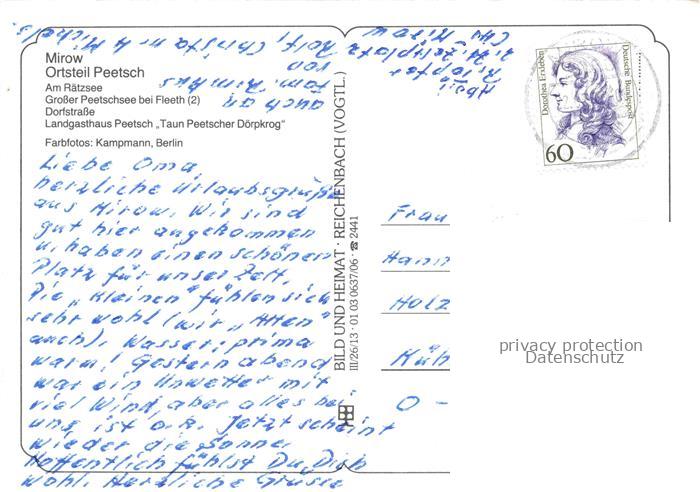 Mirow
Ortsteil Peetsch
Am Rätzsee
Großer Peetschsee bei Fleeth (2)
Dorfstraße
Landgasthaus Peetsch „Taun Peetscher Dörpkrog“
Farbfotos: Kampmann, Berlin
Liebe Oma
herzliche Urlaubsgrüße
aus Mirow. Wir sind
gut hier angekommen
u. haben einen schönen
Platz für unser Zelt.
Die „Kleinen“ fühlen sich
sehr wohl (wir „Alten“
auch). Wasser: prima
warm! Gestern abend
war ein Unwetter mit
viel Wind, aber alles bei
uns ist o.k. Jetzt scheint
wieder die Sonne.
Hoffentlich fühlst Du Dich
wohl. Herzliche Grüsse
von Rolf, Christa u.
auch an Fam.
BILD UND HEIMAT · REICHENBACH (VOGTL.)
III/26/13 · 01 03 0637/06 · ☎ 2441
Abs.:
z. Zt. Zeltplatz
Mirow
Dorothea Erxleben
Deutsche Bundespost
60
Frau
Hann
Holz
Küh
O -
privacy protection
Datenschutz